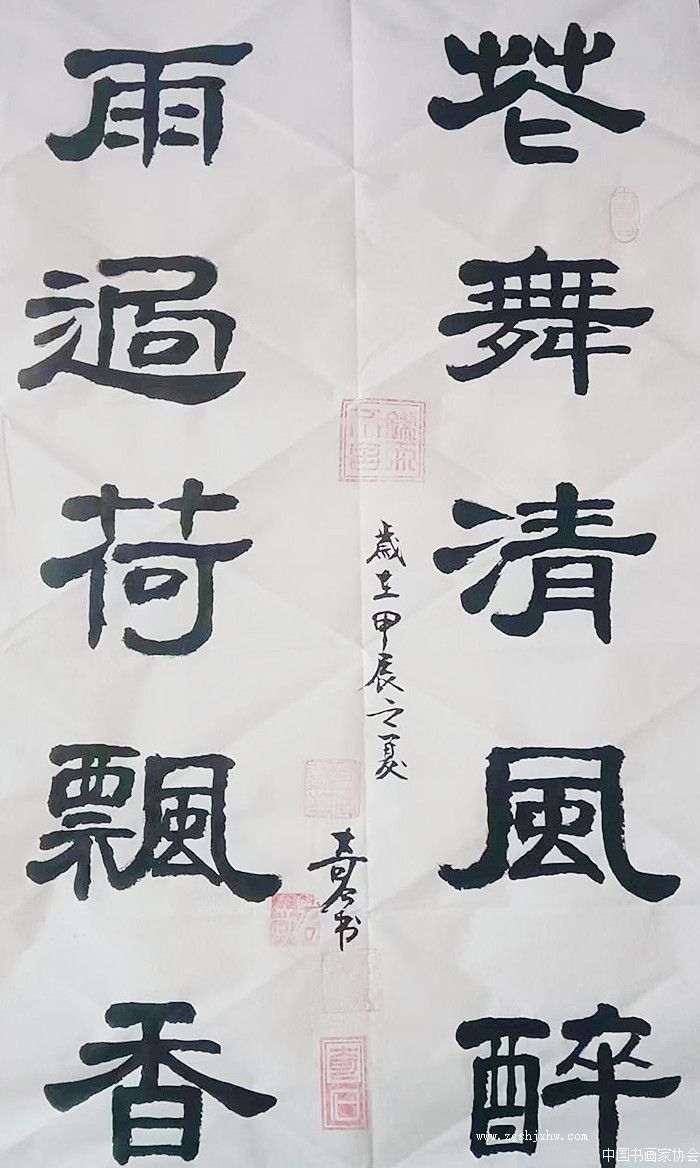 花舞清風醉
雨過荷飄香
歲在甲辰之夏
书
www.zgchjxhw.com
中国书画家协会